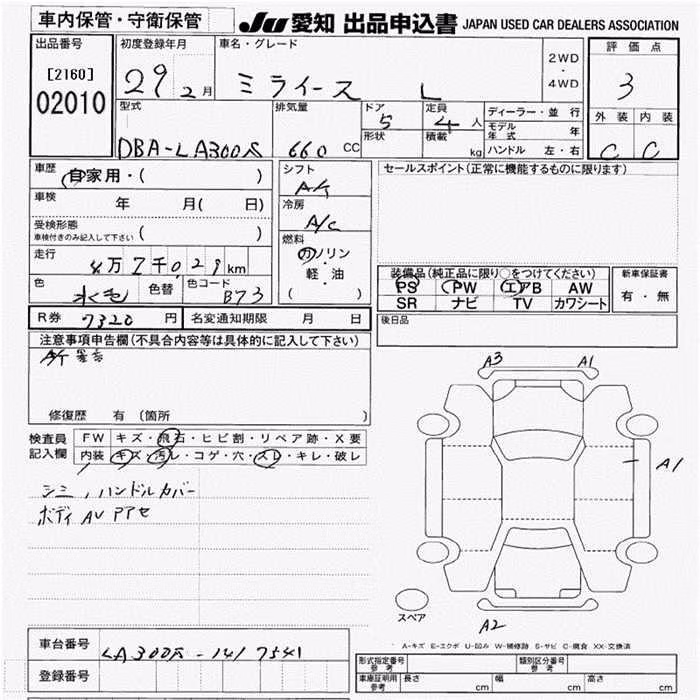 車内保管・守衛保管
JU 愛知 出品申込書 JAPAN USED CAR DEALERS ASSOCIATION
出品番号
[2160]
02010
初度登録年月
29 2月
車名・グレード
ミライース L
2WD
・
4WD
評価点
3
外装 内装
C C
型式
DBA-LA300S
排気量
660 CC
ドア
5
形状
定員
4 人
積載
kg
ディーラー・並行
モデル年式 年
ハンドル 左・右
車歴
自家用・( )
車検
年 月( 日)
受検形態
車検付きのみ記入して下さい ( )
走行
4万7千029km
色
水色
色替
色コード
B73
シフト
冷房
A/C
燃料
ガソリン
・
軽油
( )
セールスポイント(正常に機能するものに限ります)
装備品(純正品に限り○をつけてください)
PS PW エアB AW
SR ナビ TV カワシート
新車保証書
有・無
R券 7320 円
名変通知期限 月 日
後日品
注意事項申告欄(不具合内容等は具体的に記入して下さい)
修復歴 有 (箇所 )
検査員
記入欄
FW キズ・飛石・ヒビ割・リペア跡・X要
内装 キズ・汚レ・コゲ・穴・スレ・キレ・破レ
シミ, ハンドルカバー
ボディ AV PTセ
A3 A1
A1
スペア
A2
A-キズ E-エクボ U-凹み W-補修跡 S-サビ C-腐食 XX-交換済
車台番号
LA300S-1417541
登録番号
形式指定番号
参考
類別区分番号
参考
車庫証明用
参考
長さ cm 幅 cm 高さ cm